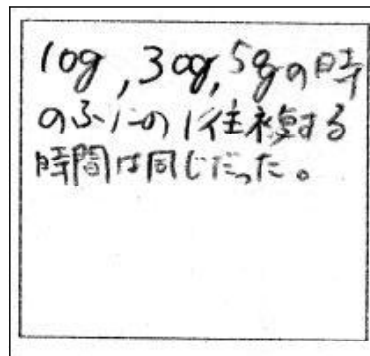 10g,30g,5gの時
のふりこの1往復する
時間は同じだった。